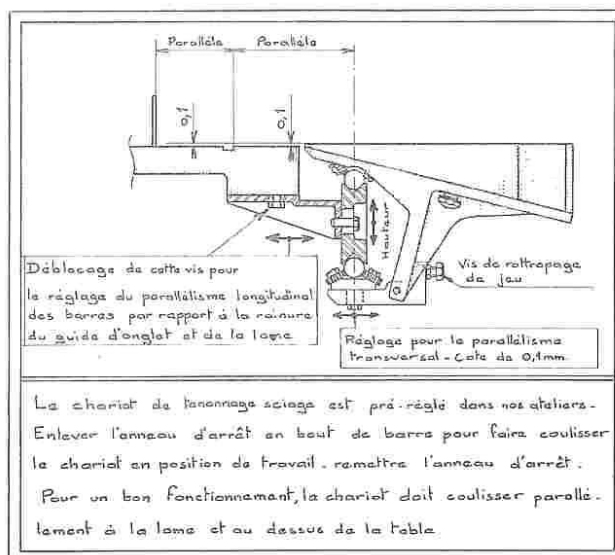 Parallèle Parallèle
0,1
0,1
Hauteur
Déblocage de cette vis pour
le réglage du parallélisme longitudinal
des barres par rapport à la rainure
du guide d'onglet et de la lame
Vis de rattrapage
de jeu
Réglage pour le parallélisme
transversal - Cote de 0,1mm.
Le chariot de tenonnage sciage est pré-réglé dans nos ateliers.
Enlever l'anneau d'arrêt en bout de barre pour faire coulisser
le chariot en position de travail - remettre l'anneau d'arrêt.
Pour un bon fonctionnement, le chariot doit coulisser parallè-
lement à la lame et au dessus de la table